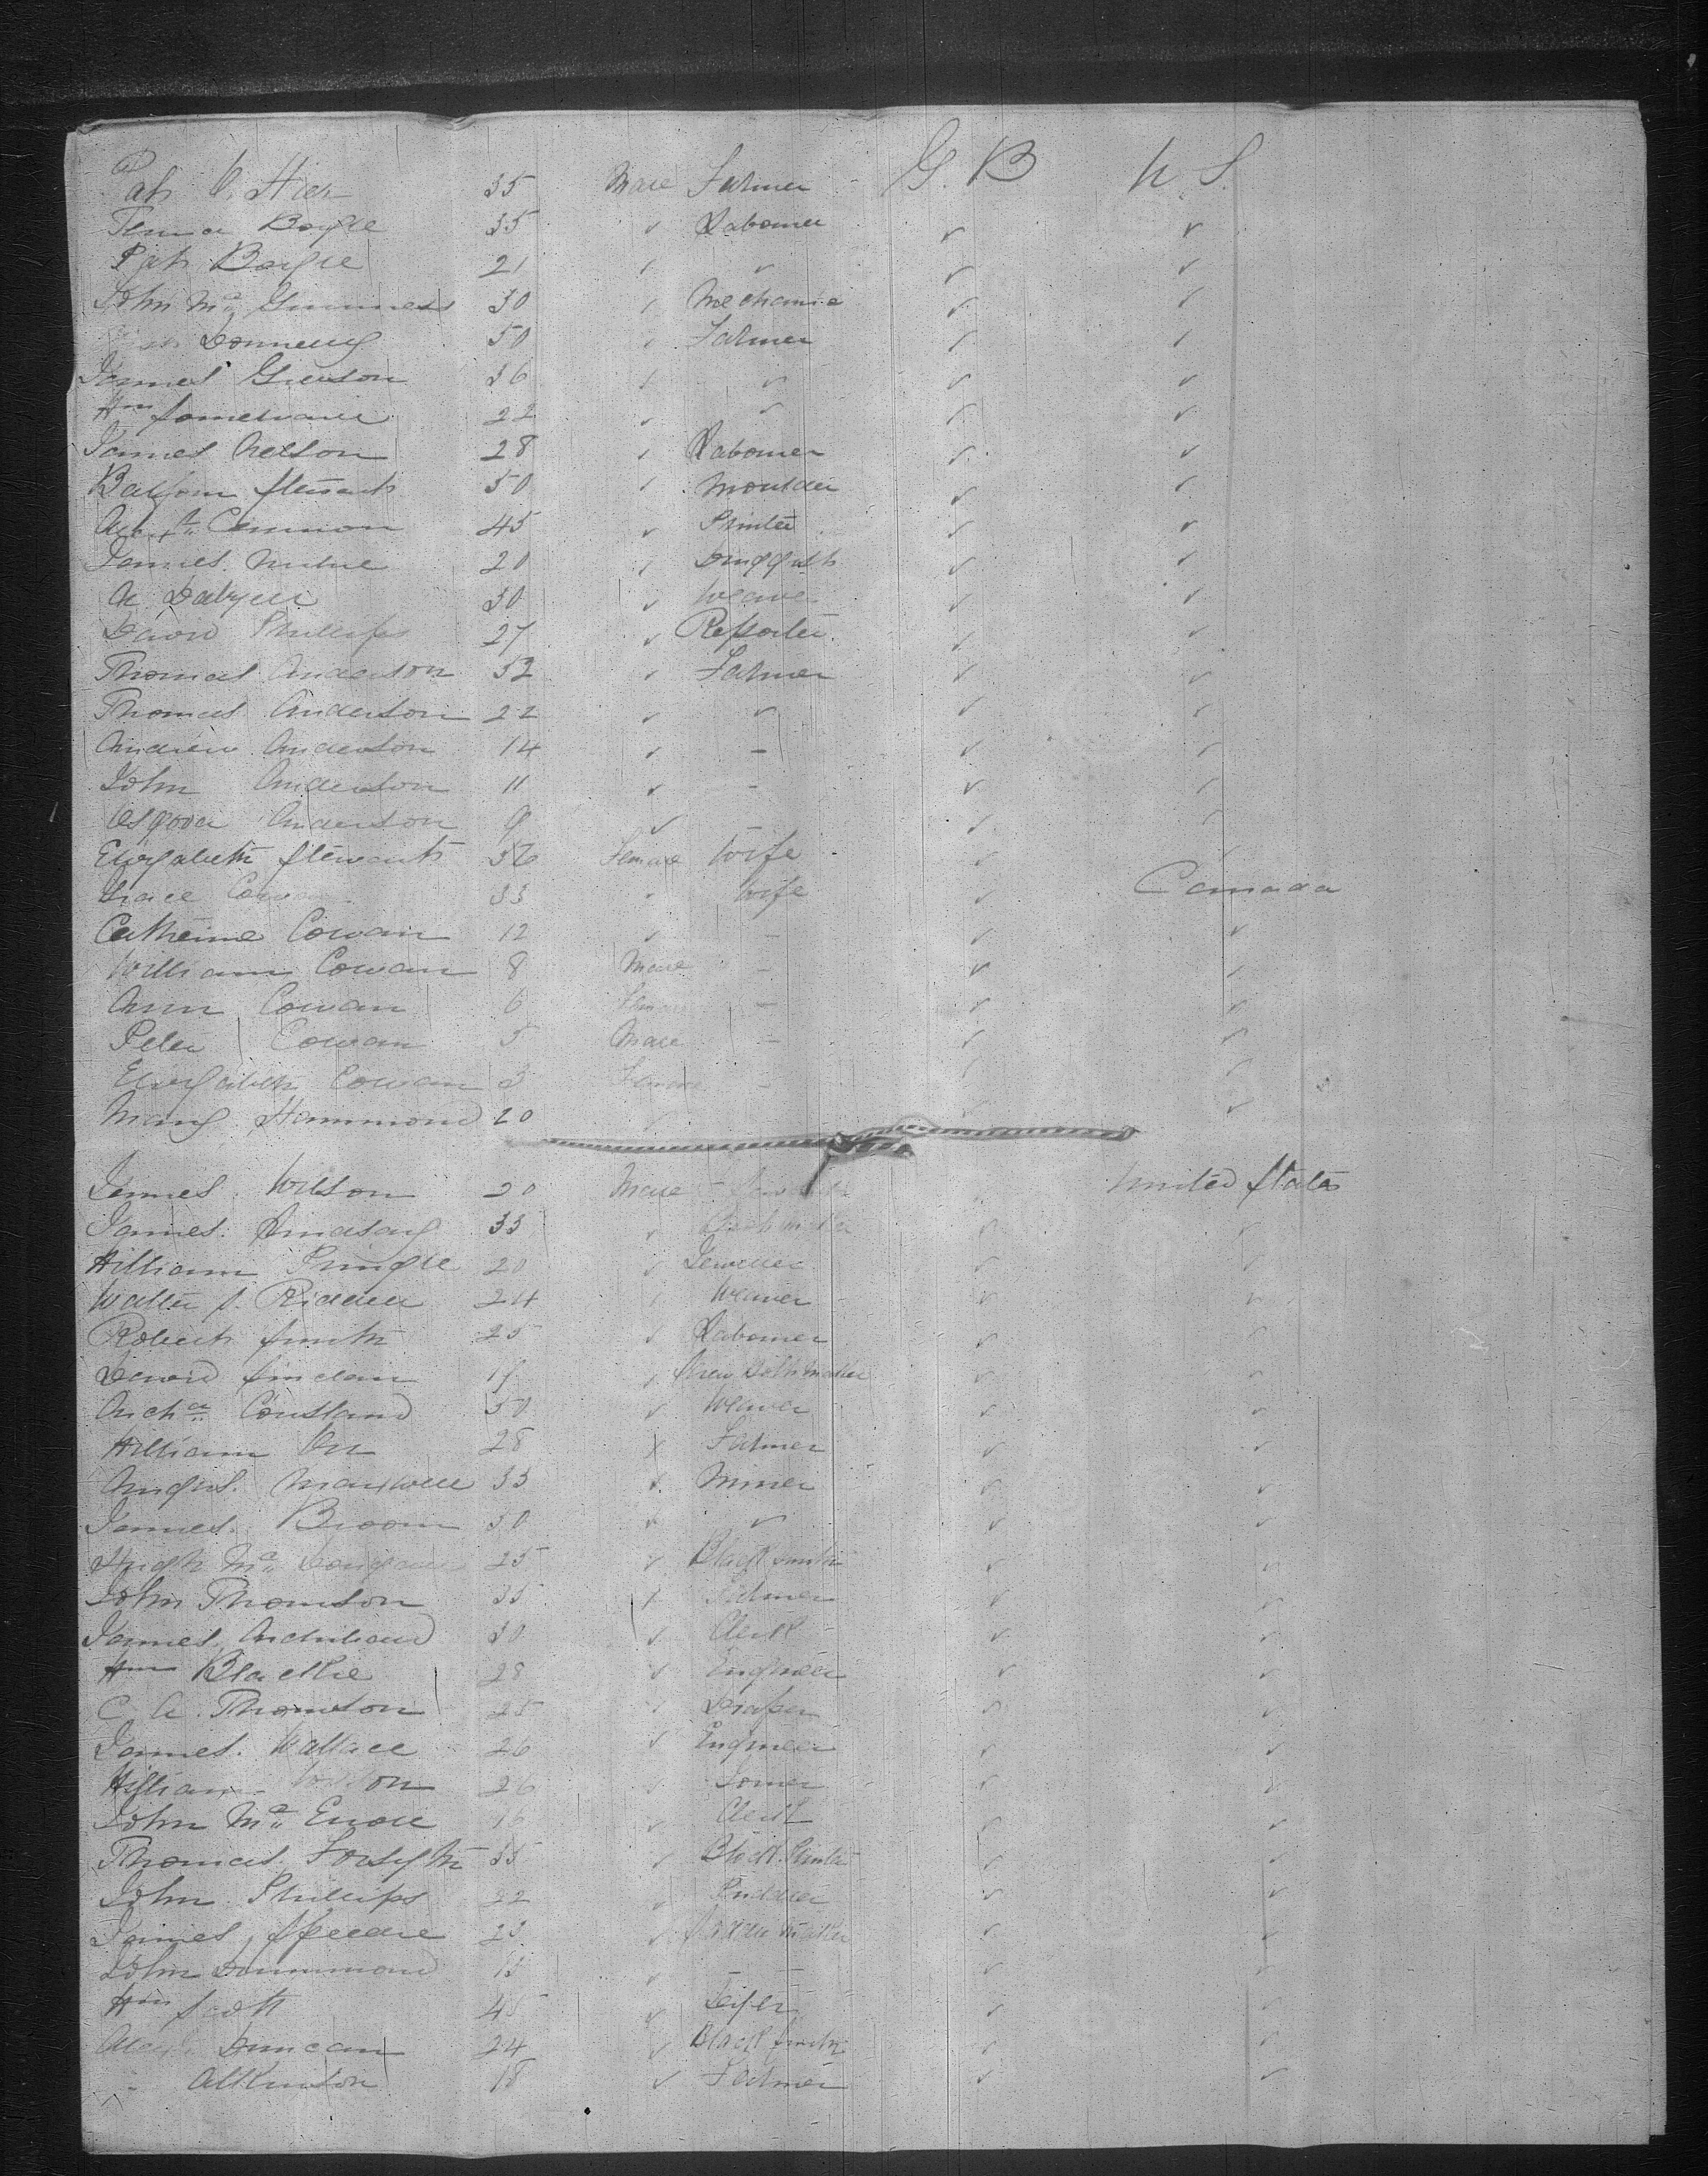 Pat O. Hier 35 Male Farmer G. B U. S.
Boyle 35 ✓ Labourer ✓ ✓
Pat Boyle 21 ✓ ✓ ✓ ✓
John Mc Guinness 30 ✓ Mechanic ✓ ✓
50 ✓ Farmer ✓ ✓
James Grieson 36 ✓ ✓ ✓ ✓
Wm 22 ✓ ✓ ✓ ✓
James Nelson 28 ✓ Labourer ✓ ✓
Stewart 50 ✓ Moulder ✓ ✓
45 ✓ Printer ✓ ✓
James Milne 20 ✓ Druggist ✓ ✓
A. Dalziel 30 ✓ Weaver ✓ ✓
David Phillips 27 ✓ Reporter ✓ ✓
Thomas Anderson 52 ✓ Farmer ✓ ✓
Thomas Anderson 22 ✓ ✓ ✓ ✓
Andrew Anderson 14 ✓ - ✓ ✓
John Anderson 11 ✓ - ✓ ✓
Anderson 9 ✓ - ✓ ✓
Elizabeth Stewart 36 Female Wife ✓ ✓
Grace Cowan 33 ✓ Wife ✓ Canada
Catherine Cowan 12 ✓ - ✓ ✓
William Cowan 8 Male - ✓ ✓
Ann Cowan 6 Female - ✓ ✓
Peter Cowan 5 Male - ✓ ✓
Elizabeth Cowan 3 Female - ✓ ✓
Mary Hammond 20 ✓ ✓ ✓
James Wilson 20 Male United States
James Lindsay 33 ✓ ✓ ✓
William Pringle 20 ✓ Jeweller ✓ ✓
Walter S. Riddell 24 ✓ Weaver ✓ ✓
Robert Smith 25 ✓ Labourer ✓ ✓
David Sinclair 19 ✓ Screw Bolt Maker ✓ ✓
Archd. Cousland 50 ✓ Weaver ✓ ✓
William Orr 28 ✓ Farmer ✓ ✓
Angus Maxwell 33 ✓ Miner ✓ ✓
James Broom 30 ✓ ✓ ✓ ✓
Hugh Mc Dougall 25 ✓ Blacksmith ✓ ✓
John Thomson 35 ✓ Farmer ✓ ✓
James Archibald 30 ✓ Clerk ✓ ✓
Wm Blackie 28 ✓ Engineer ✓ ✓
C. A. Thomson 25 ✓ Draper ✓ ✓
James Wallace 26 ✓ Engineer ✓ ✓
William 26 ✓ Joiner ✓ ✓
John Mc Ewan 16 ✓ Clerk ✓ ✓
Thomas Forsyth 35 ✓ Block Printer ✓ ✓
John Phillips 22 ✓ Puddler ✓ ✓
James Speedie 23 ✓ Maker ✓ ✓
John Drummond 13 ✓ - ✓ ✓
Wm Scott 45 ✓ ✓ ✓
Duncan 24 ✓ Black Smith ✓ ✓
Atkinson 18 ✓ Farmer ✓ ✓